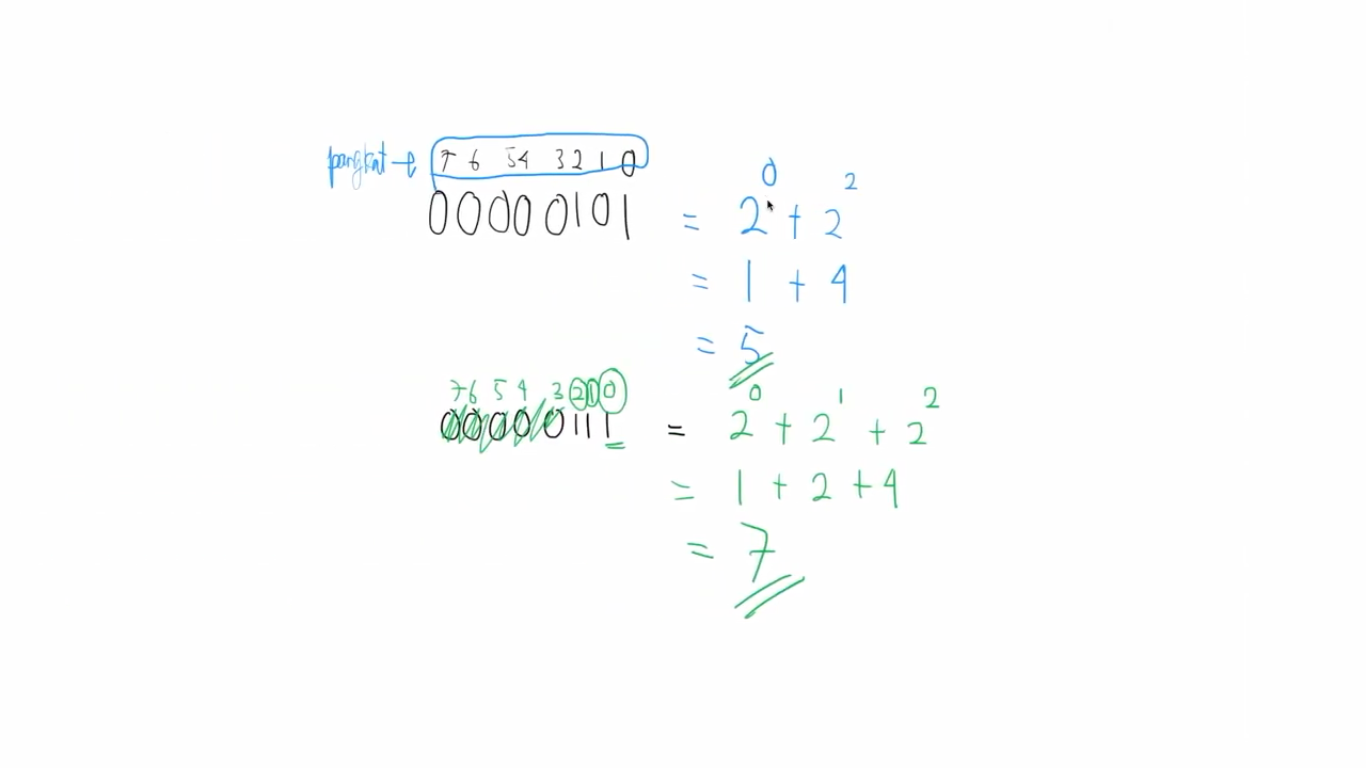 pangkat → 7 6 5 4 3 2 1 0
00000101 = 2⁰ + 2²
= 1 + 4
= 5
7 6 5 4 3 2 1 0
00000111 = 2⁰ + 2¹ + 2²
= 1 + 2 + 4
= 7